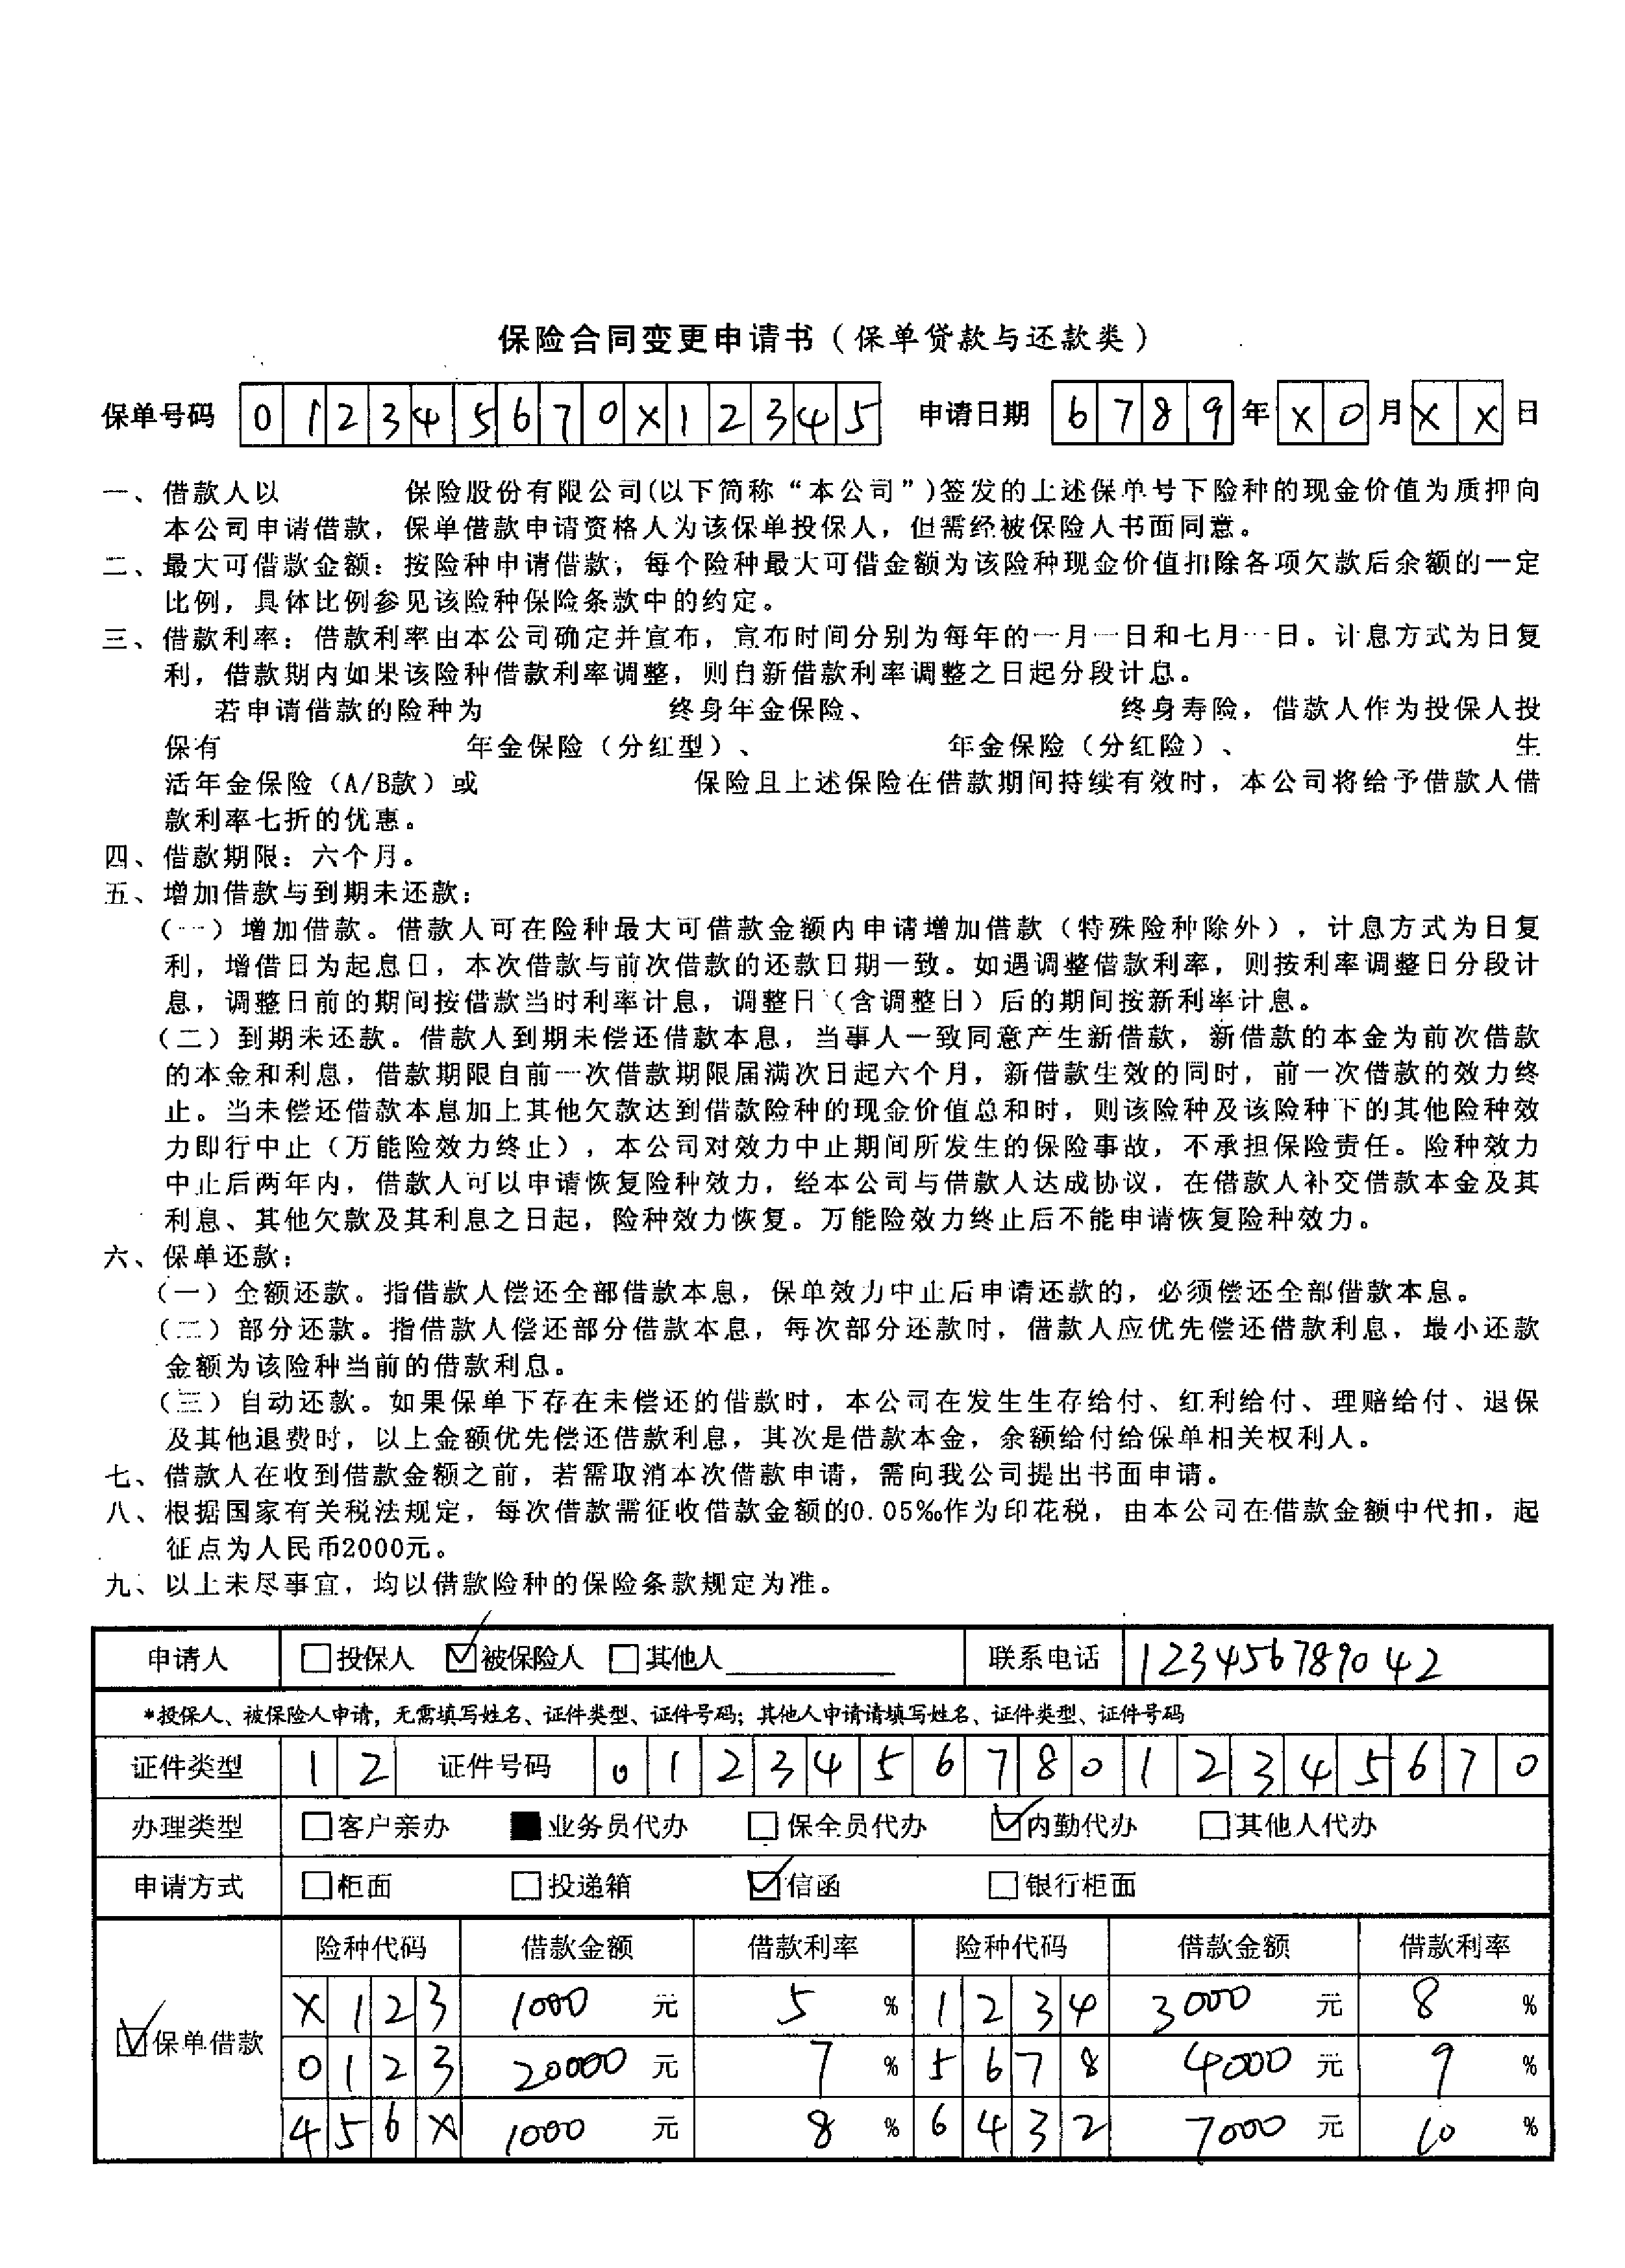 保险合同变更申请书（保单贷款与还款类）
保单号码 0 1 2 3 4 5 6 7 0 X 1 2 3 4 5 申请日期 6 7 8 9 年 X 0 月 X X 日
一、借款人以 保险股份有限公司(以下简称“本公司”)签发的上述保单号下险种的现金价值为质押向
本公司申请借款，保单借款申请资格人为该保单投保人，但需经被保险人书面同意。
二、最大可借款金额：按险种申请借款，每个险种最大可借金额为该险种现金价值扣除各项欠款后余额的一定
比例，具体比例参见该险种保险条款中的约定。
三、借款利率：借款利率由本公司确定并宣布，宣布时间分别为每年的一月一日和七月一日。计息方式为日复
利，借款期内如果该险种借款利率调整，则自新借款利率调整之日起分段计息。
若申请借款的险种为 终身年金保险、 终身寿险，借款人作为投保人投
保有 年金保险（分红型）、 年金保险（分红险）、 生
活年金保险（A/B款）或 保险且上述保险在借款期间持续有效时，本公司将给予借款人借
款利率七折的优惠。
四、借款期限：六个月。
五、增加借款与到期未还款：
（一）增加借款。借款人可在险种最大可借款金额内申请增加借款（特殊险种除外），计息方式为日复
利，增借日为起息日，本次借款与前次借款的还款日期一致。如遇调整借款利率，则按利率调整日分段计
息，调整日前的期间按借款当时利率计息，调整日（含调整日）后的期间按新利率计息。
（二）到期未还款。借款人到期未偿还借款本息，当事人一致同意产生新借款，新借款的本金为前次借款
的本金和利息，借款期限自前一次借款期限届满次日起六个月，新借款生效的同时，前一次借款的效力终
止。当未偿还借款本息加上其他欠款达到借款险种的现金价值总和时，则该险种及该险种下的其他险种效
力即行中止（万能险效力终止），本公司对效力中止期间所发生的保险事故，不承担保险责任。险种效力
中止后两年内，借款人可以申请恢复险种效力，经本公司与借款人达成协议，在借款人补交借款本金及其
利息、其他欠款及其利息之日起，险种效力恢复。万能险效力终止后不能申请恢复险种效力。
六、保单还款：
（一）全额还款。指借款人偿还全部借款本息，保单效力中止后申请还款的，必须偿还全部借款本息。
（二）部分还款。指借款人偿还部分借款本息，每次部分还款时，借款人应优先偿还借款利息，最小还款
金额为该险种当前的借款利息。
（三）自动还款。如果保单下存在未偿还的借款时，本公司在发生生存给付、红利给付、理赔给付、退保
及其他退费时，以上金额优先偿还借款利息，其次是借款本金，余额给付给保单相关权利人。
七、借款人在收到借款金额之前，若需取消本次借款申请，需向我公司提出书面申请。
八、根据国家有关税法规定，每次借款需征收借款金额的0.05‰作为印花税，由本公司在借款金额中代扣，起
征点为人民币2000元。
九、以上未尽事宜，均以借款险种的保险条款规定为准。
申请人 □投保人 ☑被保险人 □其他人 联系电话 123456789042
*投保人、被保险人申请，无需填写姓名、证件类型、证件号码；其他人申请请填写姓名、证件类型、证件号码
证件类型 1 2 证件号码 0 1 2 3 4 5 6 7 8 0 1 2 3 4 5 6 7 0
办理类型 □客户亲办 ■业务员代办 □保全员代办 ☑内勤代办 □其他人代办
申请方式 □柜面 □投递箱 ☑信函 □银行柜面
险种代码 借款金额 借款利率 险种代码 借款金额 借款利率
X 1 2 3 1000 元 5 % 1 2 3 4 3000 元 8 %
☑保单借款
0 1 2 3 20000 元 7 % 5 6 7 8 4000 元 9 %
4 5 6 X 1000 元 8 % 6 4 3 2 7000 元 10 %